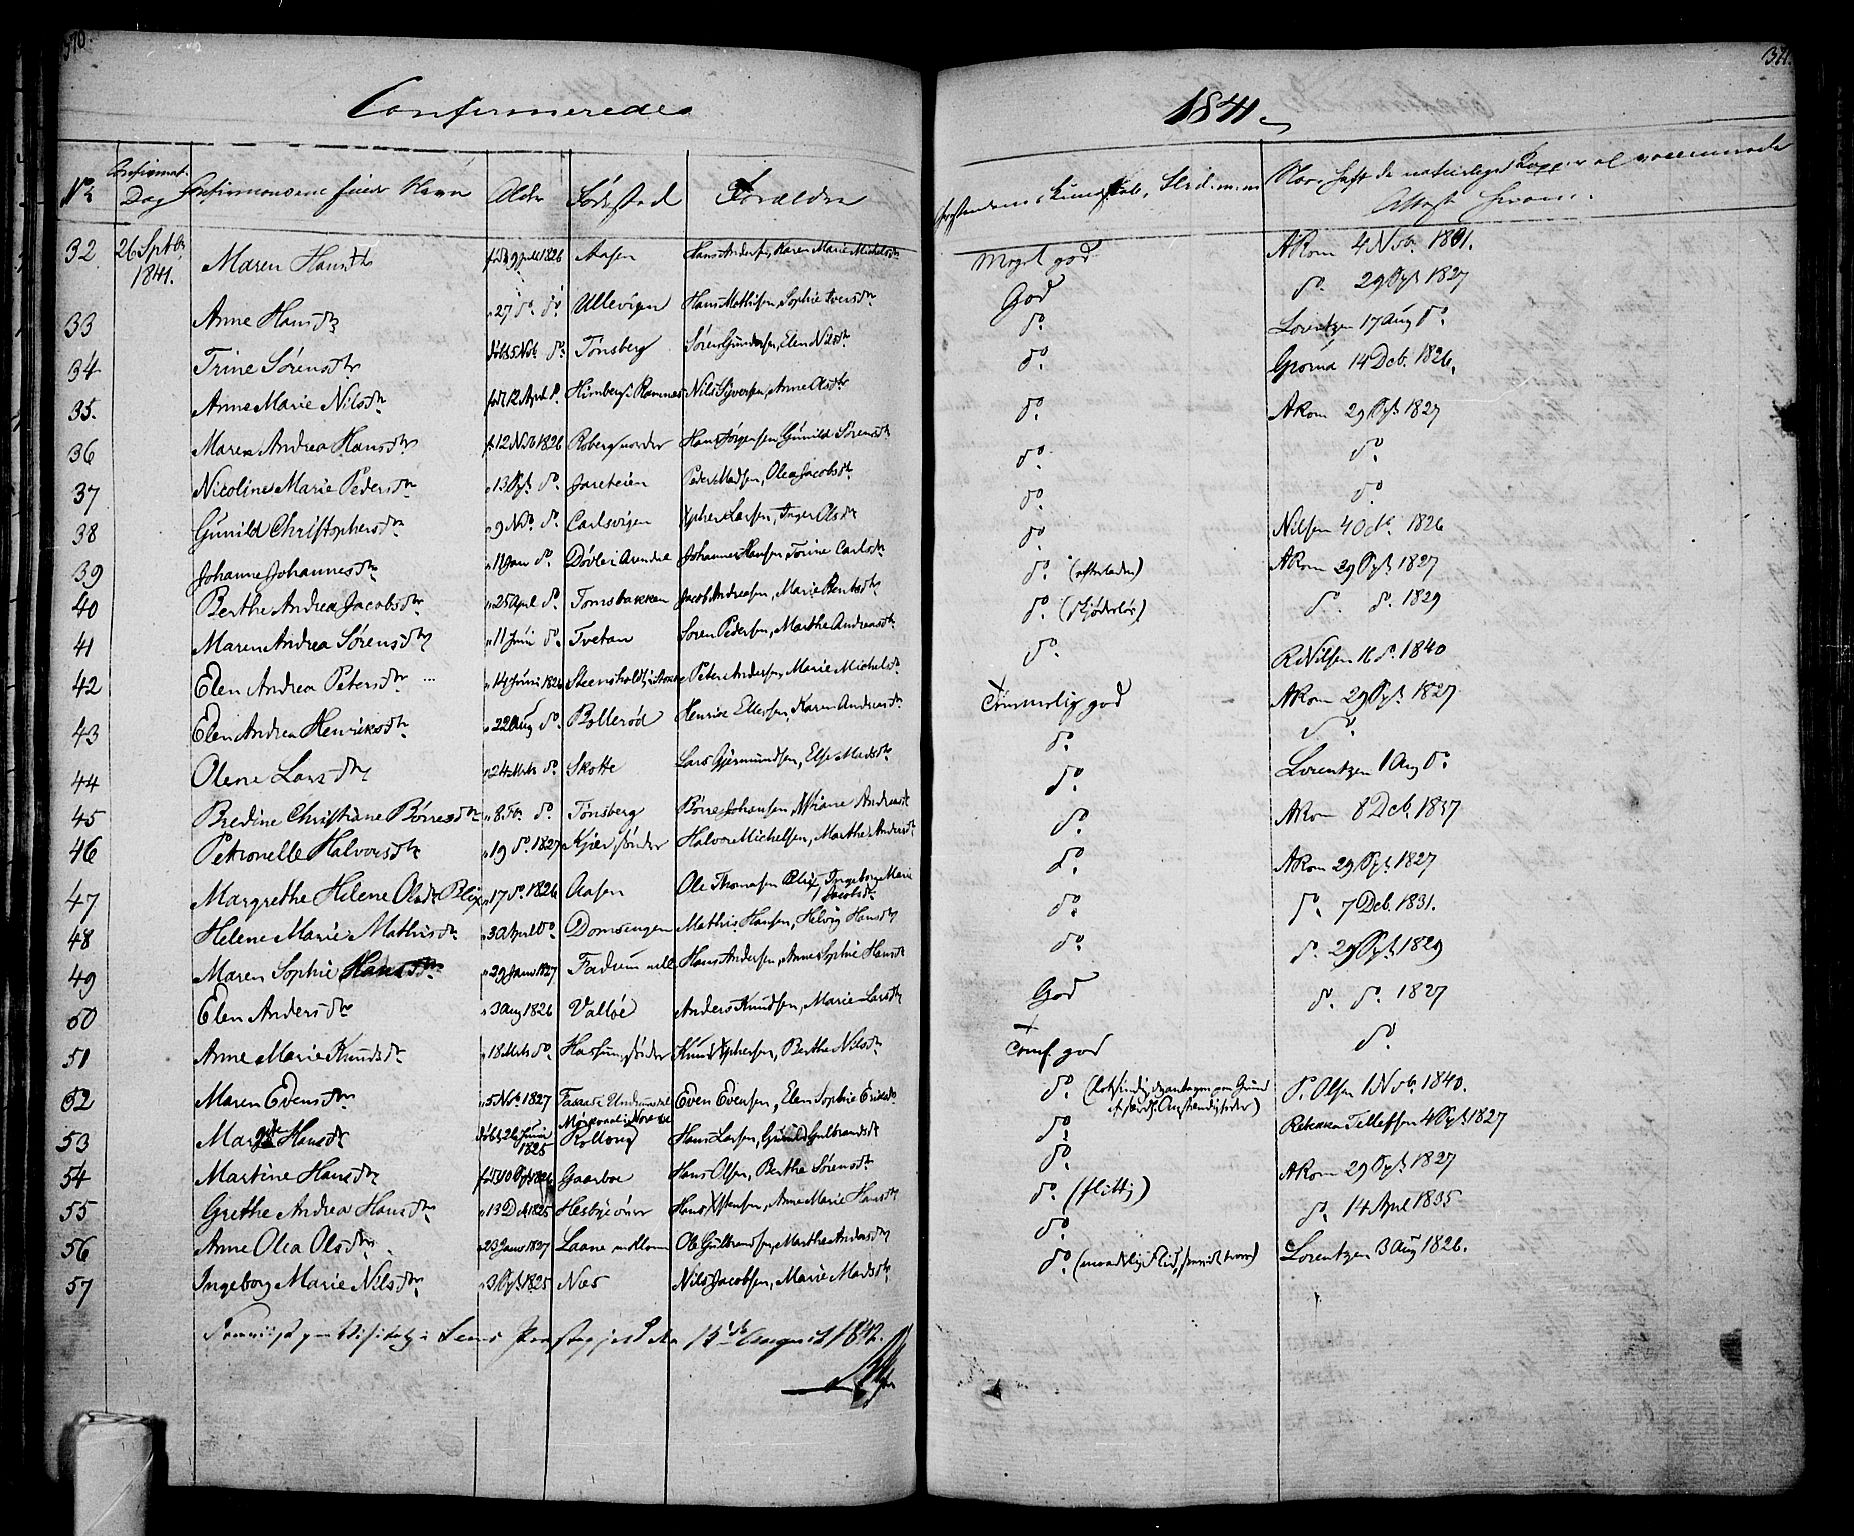 370.
Confirmerede
1841.
371.
No
Confirmat. Dag
Confirmandens fulde Navn
Alder
Fødested
Forældre
Kundskab,
Naar, haft de naturlige Kopper el vaccinerede
Attest
32 26 Septbr 1841. Maren Hansdtr Aasen Hans Andersen, Karen Marie Michelsdtr Meget god ARom 4 Nov 1831.
33 Anne Hansdtr 27 do do Ullevigen Hans Mathisen, Sophie Iversdtr God do 29 Sept 1827
34 Trine Sørensdtr døbt 5 Nov do Tønsberg Søren Gundersen, Elen Nilsdtr do Lorentzen 17 Aug do
35. Anne Marie Nilsdtr født 12 April do Himberg i Ramnes Nils Syversen, Anne Olsdtr do 14 Dcb. 1826.
36 Maren Andrea Hansdtr f. 12 Nov 1826 Roberg nordre Hans Jørgensen, Gunild Sørensdtr do ARom 29 Sept 1827
37 Nicoline Marie Pedersdtr 13 Sept do Jareteien Peder Madsen, Olea Jacobsdtr do do
38 Gunild Christophersdtr 9 Nov do Carlsvigen Xpher Larsen, Inger Olsdtr do do
39 Johanne Johannesdtr 11 Jan do Arendal Johannes Hansen, Torine Carlsdtr do Nilsen 4 Oct 1826
40 Berthe Andrea Jacobsdtr 25 April do Tomsbakken Jacob Andreasen, Marie Berntsdtr do (efterladen) ARom 29 Sept 1827
41 Maren Andrea Sørensdtr 11 Juni do Tvetan Søren Pedersen, Marthe Andreasdtr do (skjødesløs) do do 1829
42 Elen Andrea Petersdtr 14 Juni 1826 Steensholt i Stokke Peter Andersen, Marie Michelsdtr do R Nilsen 16 do 1840
43 Elen Andrea Henriksdtr 22 Aug do Bollerød Henrik Ellefsen, Karen Andreasdtr Temmelig god ARom 29 Sept 1827
44 Olene Larsdtr 24 Mrts do Skotte Lars Gjermundsen, Else Madsdtr do do
45 Bredine Christiane Børresdtr 8 Feb do Tønsberg Børre Johansen, Andreasdtr do Lorentzen 1 Aug do
46 Petronelle Halvorsdtr 19 do 1827 Kjær søndre Halvor Michelsen, Marthe Andersdtr do ARom 8 Dcb. 1837
47 Margrethe Helene Olsdtr Blix 17 do 1826 Aasen Ole Thomasen Blix, Ingeborg Marie Jacobsdtr do ARom 29 Sept 1827
48 Helene Marie Mathisdtr 30 April do Domsengen Mathis Hansen, Helvig Hansdtr do do 7 Dcb. 1831.
49 Maren Sophie Hansdtr 29 Janv 1827 Fadum Hans Andersen, Anne Sophie Hansdtr do do 29 Sept 1829
50 Elen Andersdtr 3 Aug 1826 Valløe Anders Knudsen, Marie Larsdtr God do do 1827
51 Anne Marie Knudsdtr 18 Mrts do Hassum søndre Knud Xphersen, Berthe Nilsdtr Teml. god do
52 Maren Evensdtr 5 Nov 1827 Even Evensen, Elen Sophie Eriksdtr do P. Olsen 1 Nov 1840.
53 Hansdtr døbt 26 Juni 1825 Rolloug Hans Larsen, Gunild Gulbrandsdtr do Rebekka Tellefsen 4 Sept 1827
54 Martine Hansdtr Gaarboe Hans Olsen, Berthe Sørensdtr do ARom 29 Sept 1827
55 Grethe Andrea Hansdtr 13 Dcb 1825 Hesbye Hans Xstensen, Anne Marie Hansdtr do (flittig) do 14 April 1835
56 Anne Olea Olsdtr 23 Janv 1827 Laane mellom Ole Gulbrandsen, Marthe Andersdtr do
57 Ingeborg Marie Nilsdtr 3 Sept 1825 Næs Nils Jacobsen, Marie Madsdtr do Lorentzen 3 Aug 1826.
Visitats i Sems Præstegjeld den 15de August 1842.